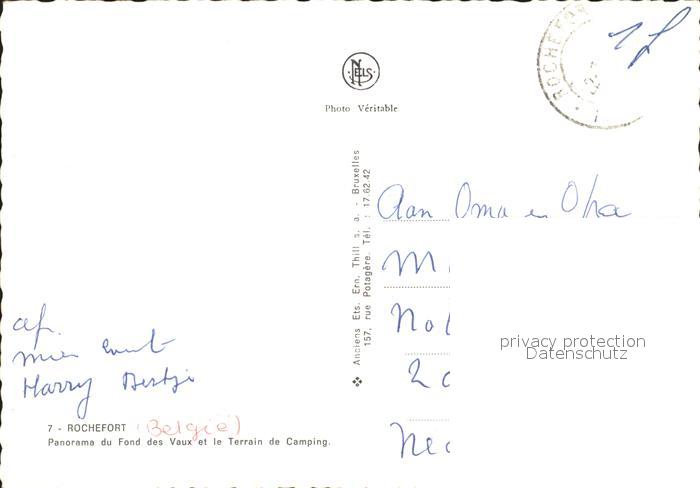 NELS
Photo Véritable
ROCHEFOR
1 f
Anciens Ets. Ern. Thill s. a. - Bruxelles
157, rue Potagère. Tél. : 17.62.42
Aan Oma en Opa
M
Not
Ne
privacy protection
Datenschutz
af.
Harry
7 - ROCHEFORT (België)
Panorama du Fond des Vaux et le Terrain de Camping.